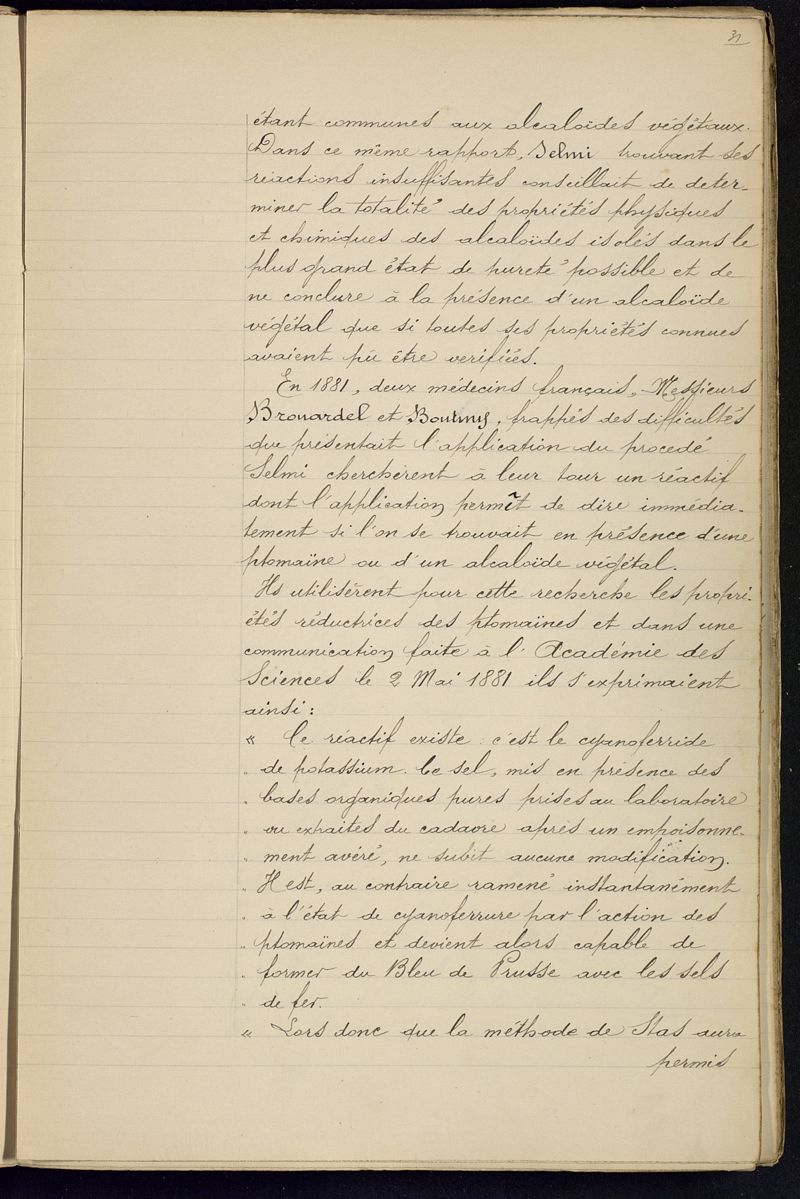 31
étant communes aux alcaloïdes végétaux.
Dans ce même rapport, Selmi trouvant ses
réactions insuffisantes conseillait de déter-
miner la totalité des propriétés physiques
et chimiques des alcaloïdes isolés dans le
plus grand état de pureté possible et de
ne conclure à la présence d'un alcaloïde
végétal que si toutes ses propriétés connues
avaient pû être vérifiées.
En 1881, deux médecins français, Messieurs
Brouardel et Boutmy, frappés des difficultés
que présentait l'application du procédé
Selmi cherchèrent à leur tour un réactif
dont l'application permît de dire immédia-
tement si l'on se trouvait en présence d'une
ptomaïne ou d'un alcaloïde végétal.
Ils utilisèrent pour cette recherche les propri-
étés réductrices des ptomaïnes et dans une
communication faite à l'Académie des
Sciences le 2 Mai 1881 ils s'exprimaient
ainsi :
« Ce réactif existe : c'est le cyanoferride
" de potassium. Ce sel, mis en présence des
" bases organiques pures prises au laboratoire
" ou extraites du cadavre après un empoisonne-
" ment avéré, ne subit aucune modification.
" Il est, au contraire ramené instantanément
" à l'état de cyanoferrure par l'action des
" ptomaïnes et devient alors capable de
" former du Bleu de Prusse avec les sels
" de fer.
« Lors donc que la méthode de Stas aura
permis